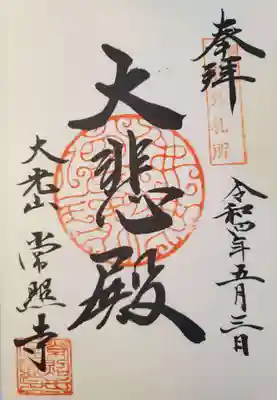 奉拝
令和四年五月三日
大悲殿
大光山
常照寺